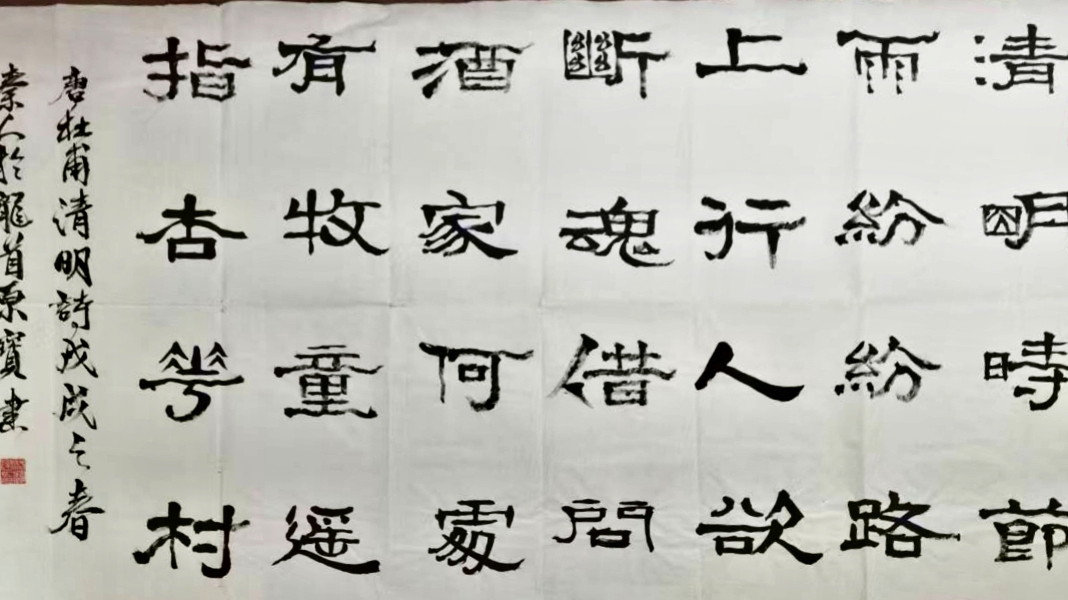 清明時節
雨紛紛路
上行人欲
斷魂借問
酒家何處
有牧童遥
指杏華村
唐杜甫清明詩戊戌之春
秦人於龍首原寶書